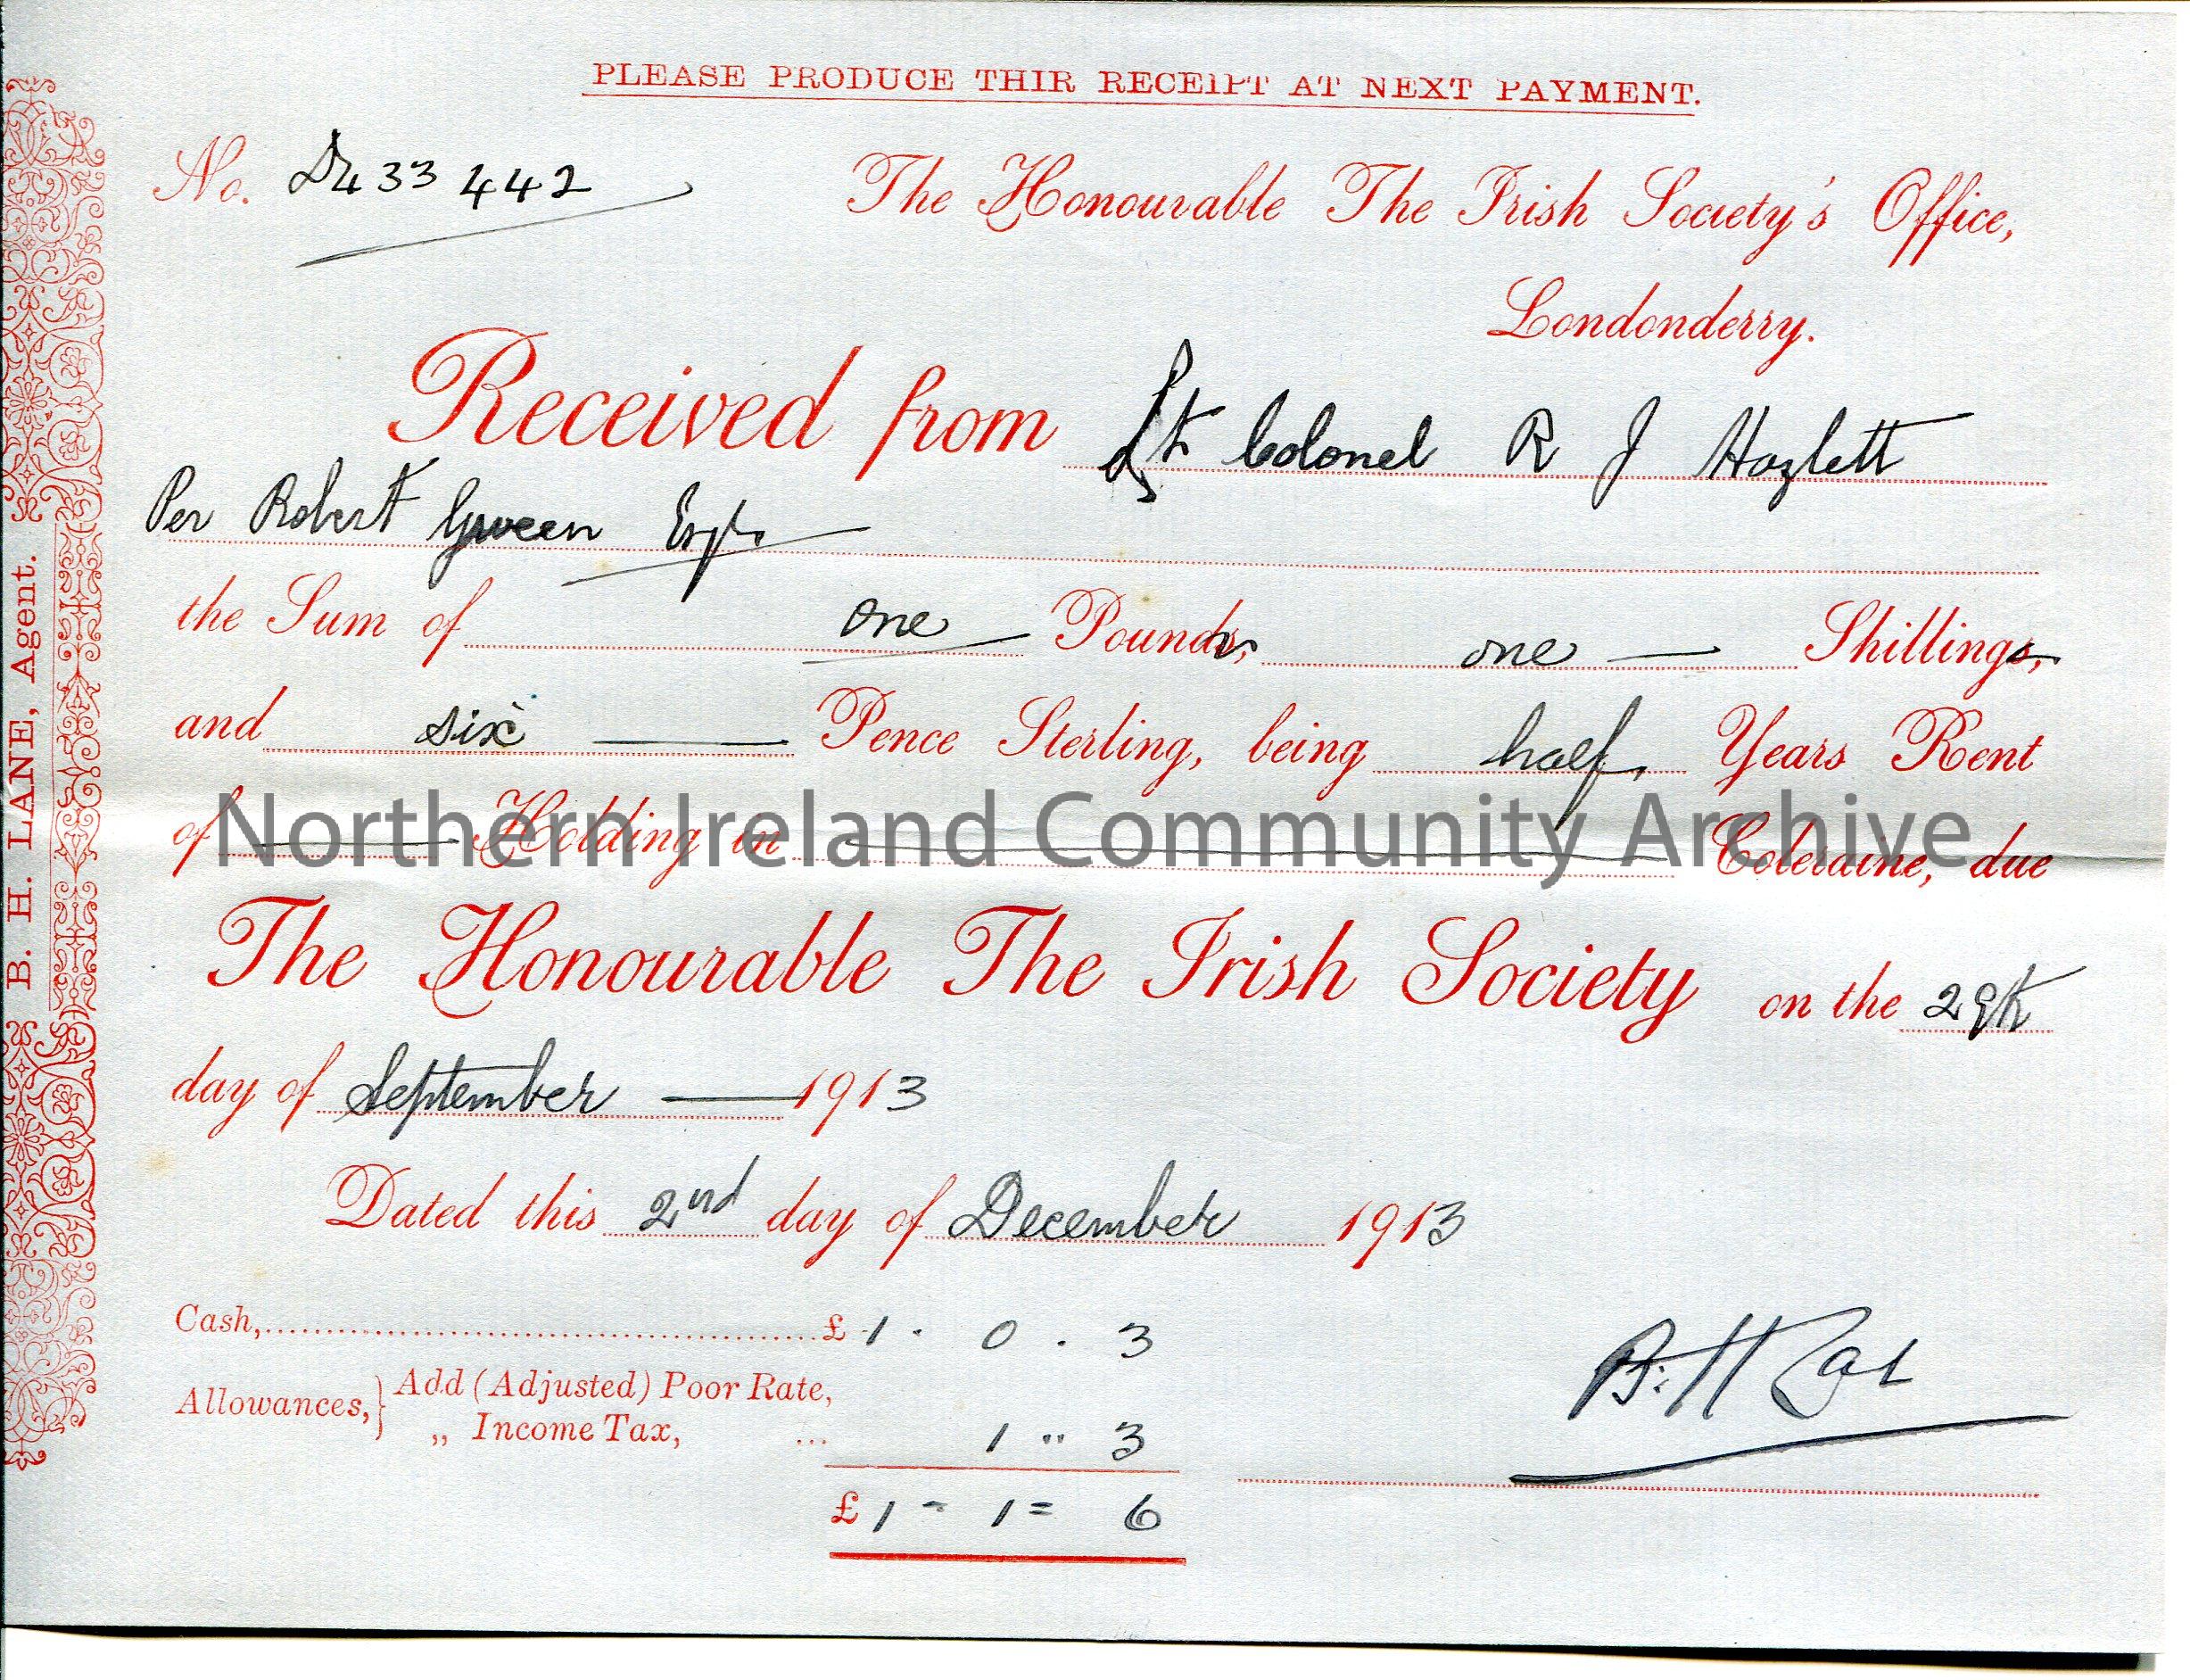 PLEASE PRODUCE THIR RECEIPT AT NEXT PAYMENT.
No. 433 442
The Honourable The Irish Society's Office,
Londonderry.
Received from Lt Colonel R J Hazlett
Per Robert Green Esqr
the Sum of one Pounds, one Shillings,
and six Pence Sterling, being half Years Rent
of Holding in Coleraine, due
Northern Ireland Community Archive
The Honourable The Irish Society on the 29th
day of September 1913
Dated this 2nd day of December 1913
Cash, £ 1 . 0 . 3
Allowances, } Add (Adjusted) Poor Rate,
„ Income Tax, ... 1 " 3
£ 1 - 1 = 6
B. H Lane
B. H. LANE, Agent.